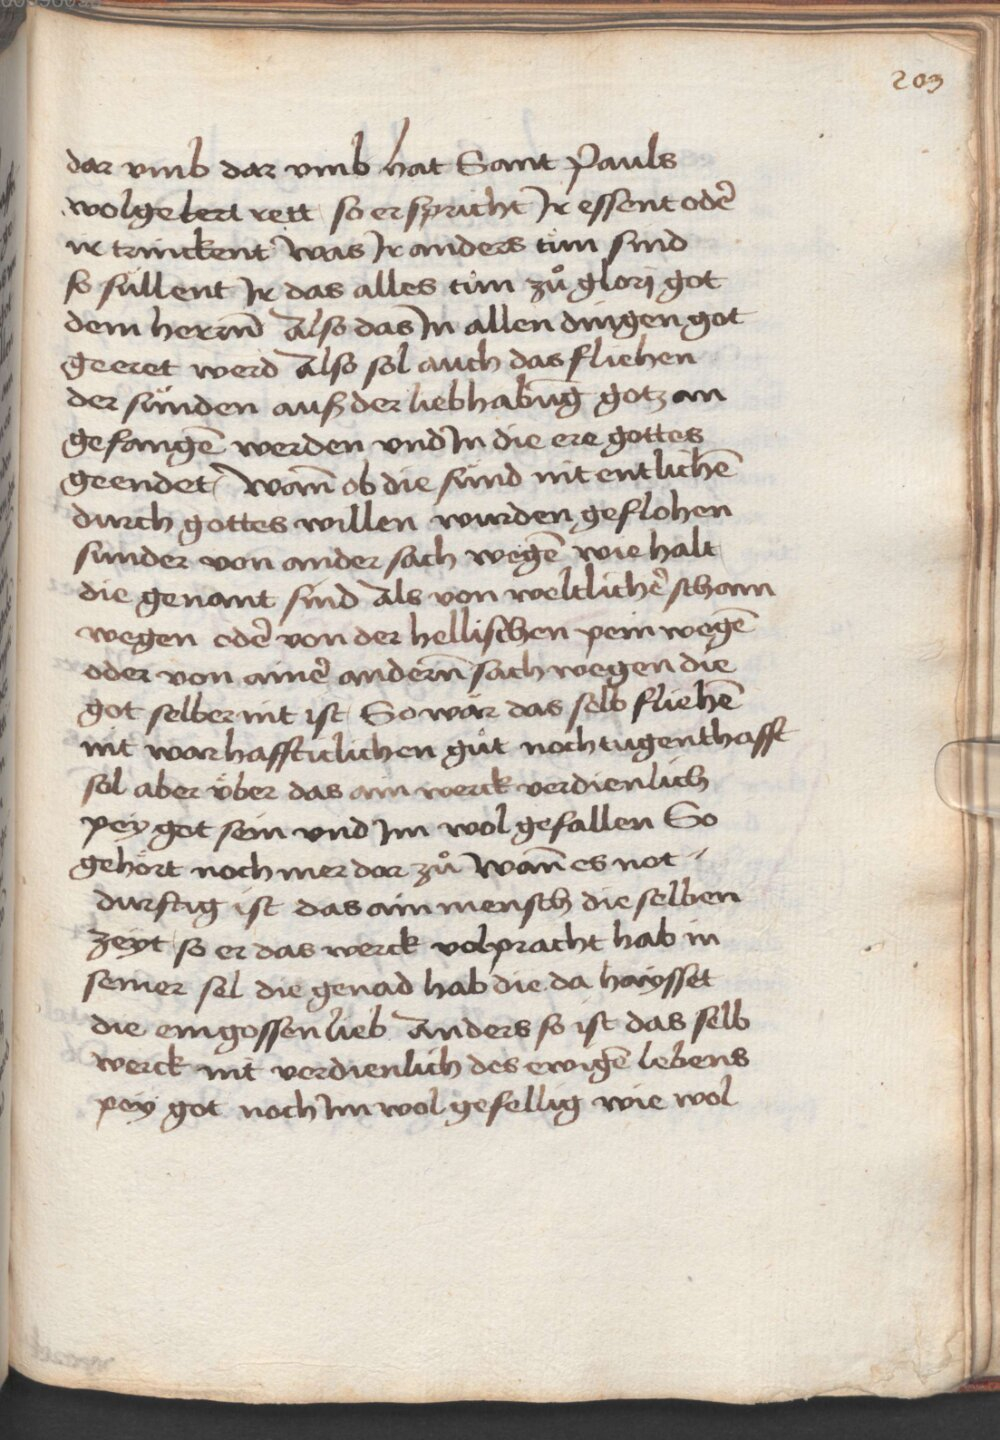 203
dar vmb dar vmb hat Sant Pauls
wolgelert rett so er spricht Jr essent oder̄
ir trinckent was Jr anders tün sind
so süllent Jr das alles tün zů glorj got
dem herrn̄ Also das Jn allen dingen got
geeret werd Also sol auch das fliehen
der sünden auß der liebhabūg gotz an
gefangē werden vnd Jn die ere gottes
geendet wan̄ ob die sünd nit entlichē
durch gottes willen wurden geflohen
sunder von ander sach wegē wie halt
die genant sind Als von weltlicher̄ scham
wegen oder̄ von der hellischen pein wegē
oder von ainer̄ andern̄ sach wegen die
got selber nit ist So wär das selb fliehē
nit warhaffticlichen gůt noch tugenthafft
sol aber v̈ber das ain werck verdienlich
pey got sein vnd Jm wol gefallen So
gehört noch mer dar zů wan̄ es not
durftig ist das ain mensch die selben
zeyt so er das werck volpracht hab in
seiner sel die genad hab die da haysset
die eingossen lieb Anders so ist das selb
werck nit verdienlich des ewigē lebens
pey got noch Jm wol gefellig wie wol